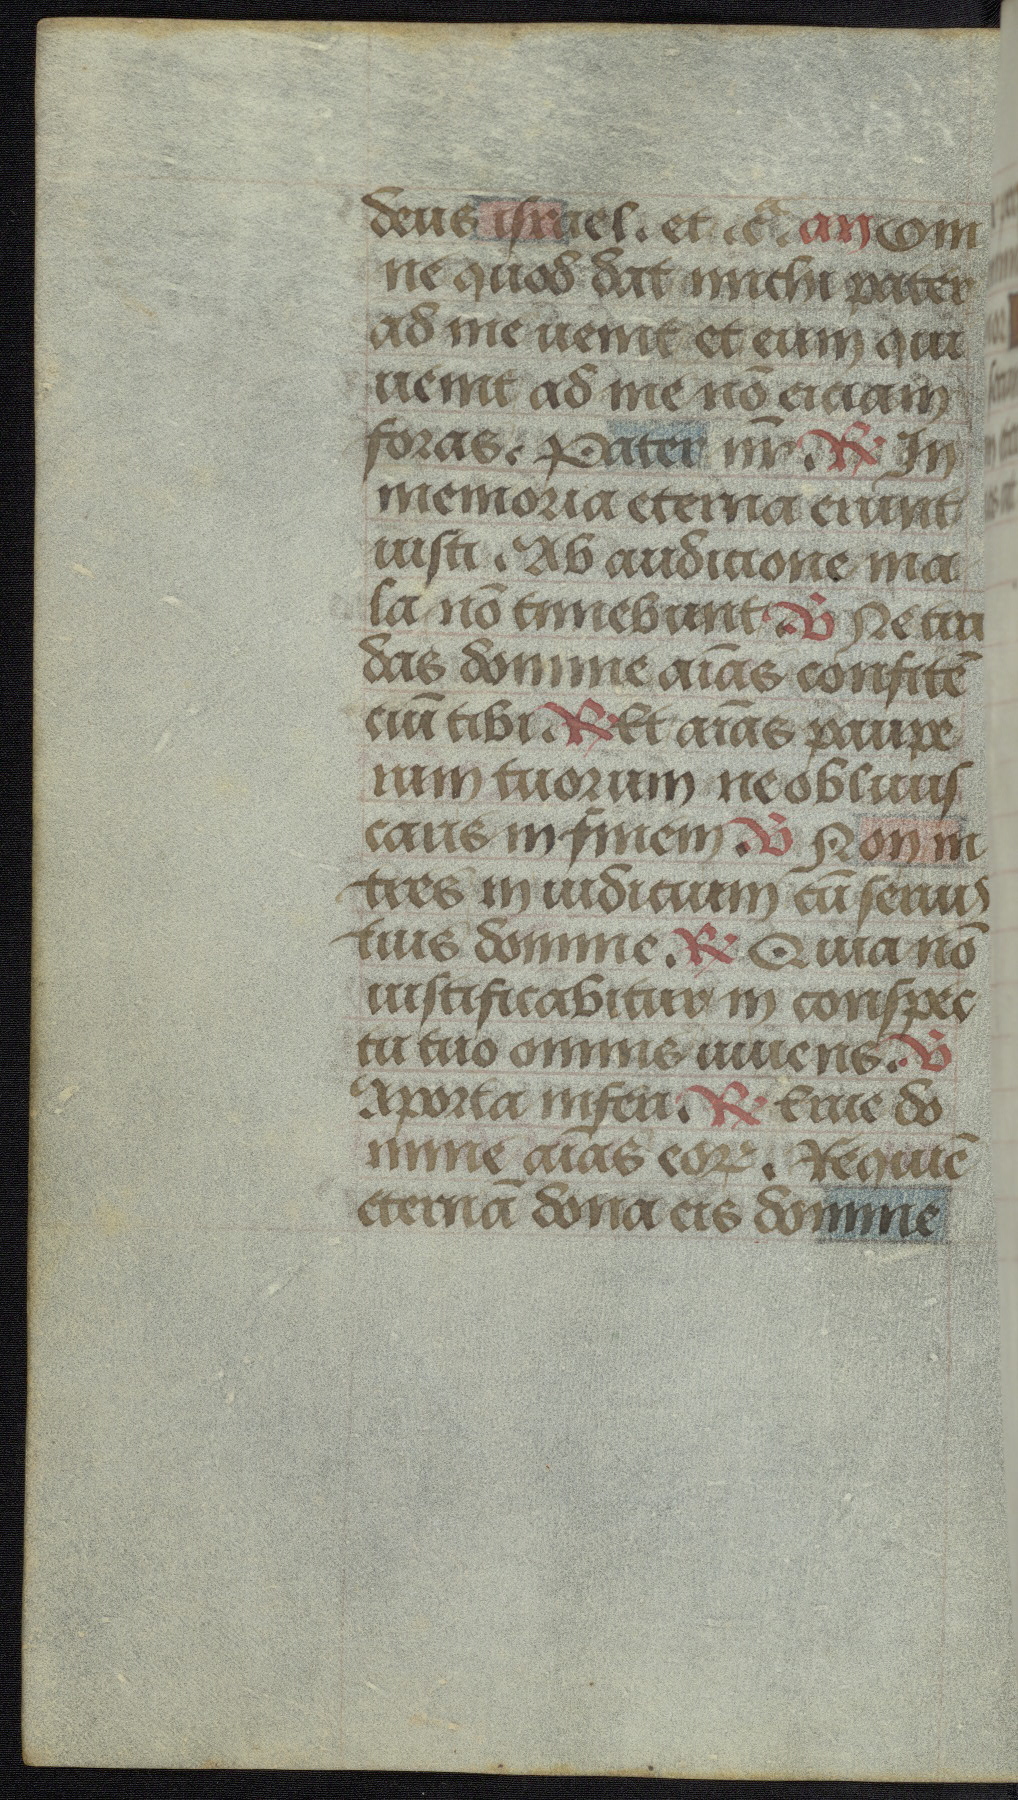 deus israel. et .c̄. an̄ Om
ne quod dat michi pater
ad me uenit et eum qui
uenit ad me nō eiciam
foras. Pater nr̄. ℟ In
memoria eterna erunt
iusti. Ab auditione ma
la nō timebunt. ℣ Ne tra
das domine aīas confitē
ciū tibi. ℟ Et aīas paupe
rum tuorum ne obliuis
caris in finem. ℣ Non in
tres in iudicium cū seruis
tuis domine. ℟ Quia nō
iustificabitur in conspec
tu tuo omnis uiuens. ℣
A porta inferi. ℟ Erue do
mine aīas eoꝝ. Requiē
eternā dona eis domine